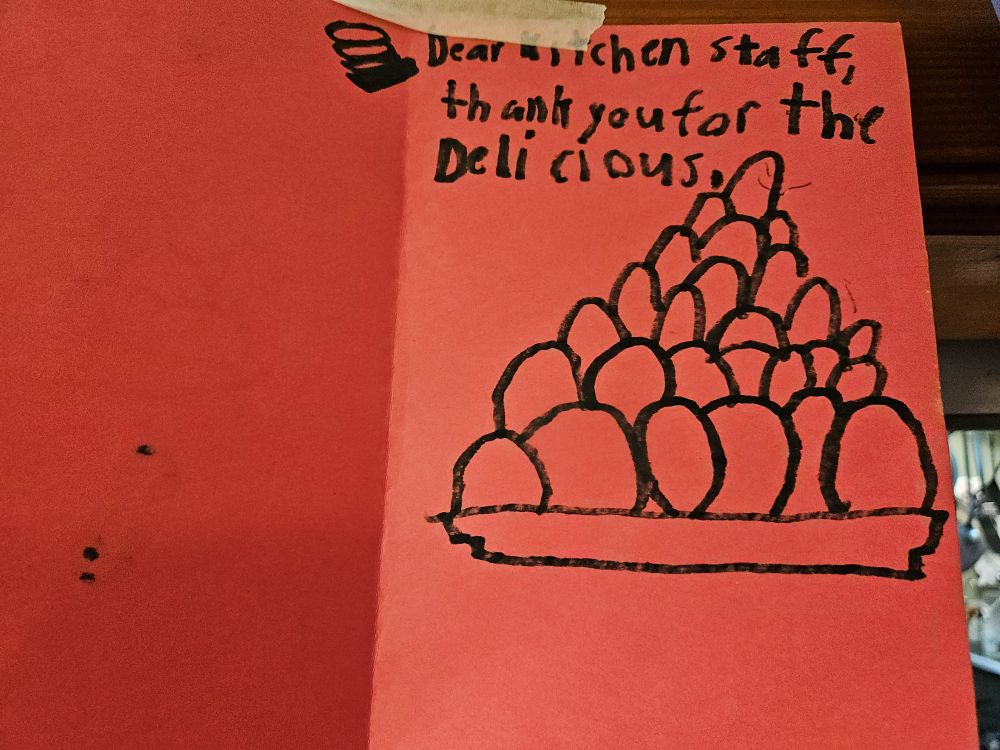 Dear kitchen staff,
thank you for the
Delicious,